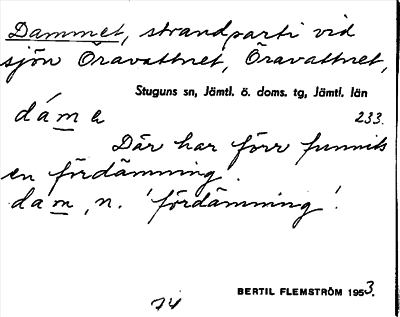 Dammet, strandparti vid
sjön Öravattnet, Öravattnet,
Stuguns sn, Jämtl. ö. doms. tg, Jämtl. län
dám e 233.
Där har förr funnits
en fördämning.
dam, n. 'fördämning'.
BERTIL FLEMSTRÖM 1953.
74